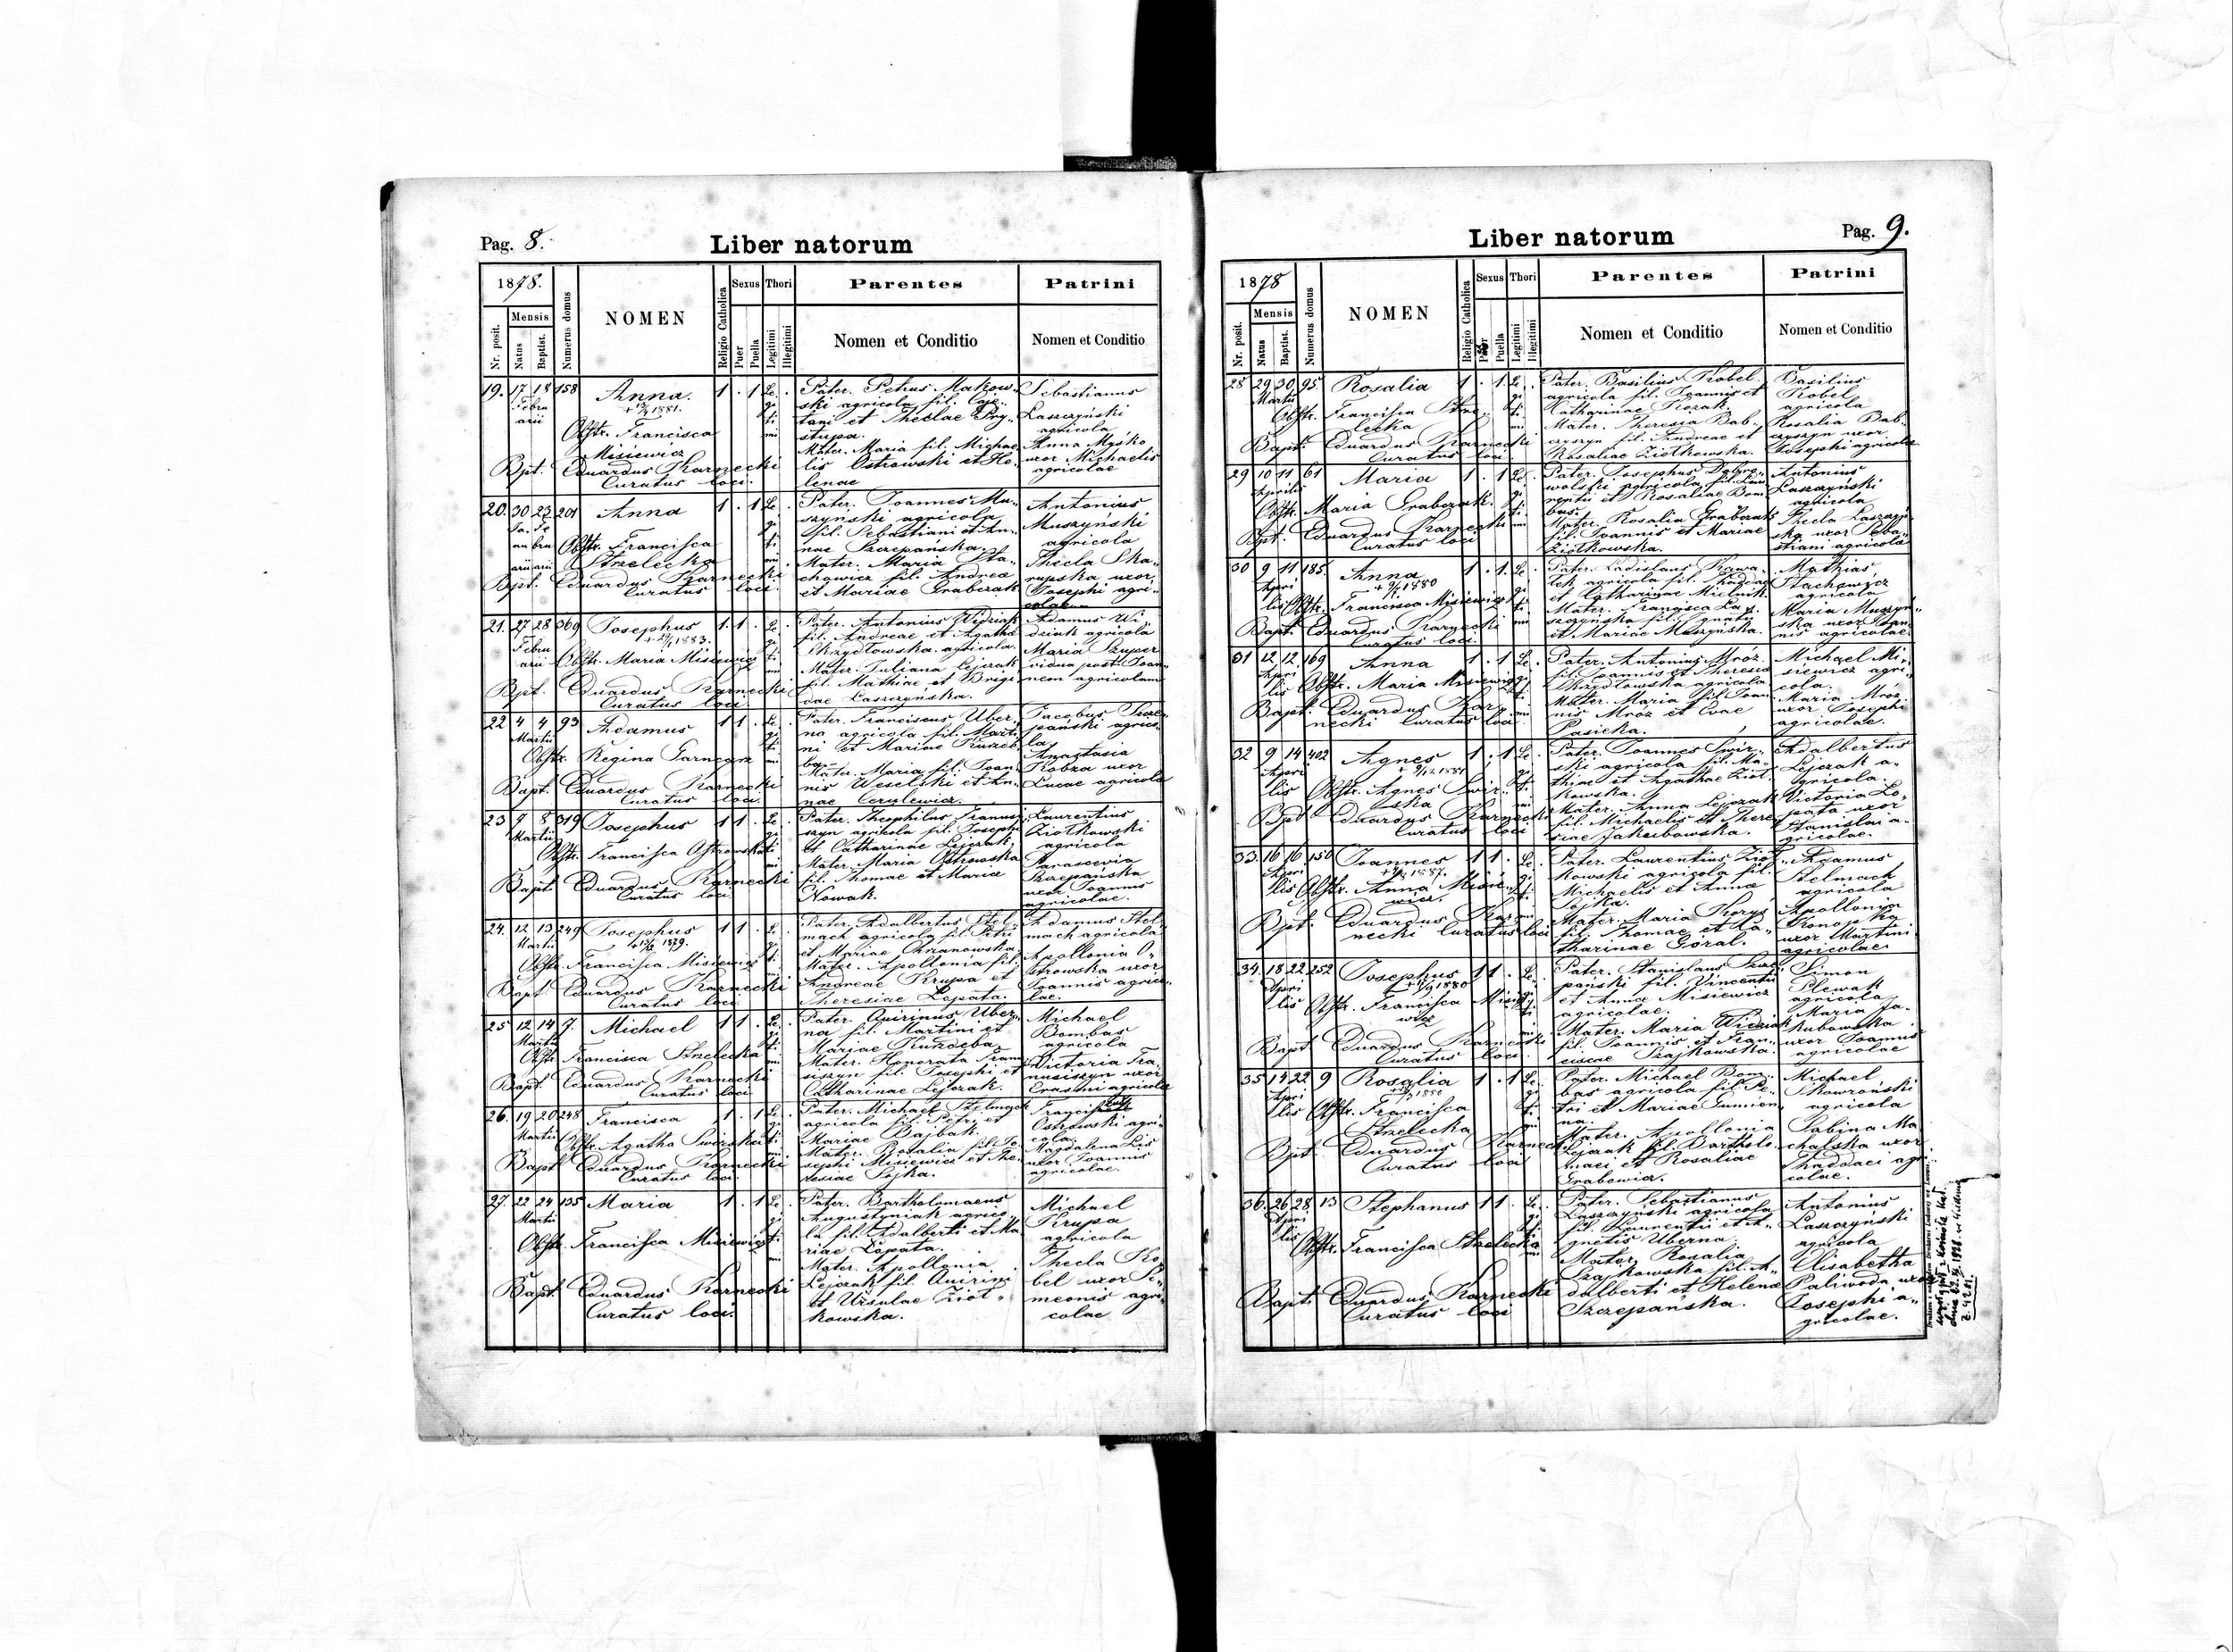 Pag. 8.
Liber natorum
1878.
Mensis
Nr. posit.
Natus
Baptist.
Numerus domus
NOMEN
Religio Catholica
Sexus
Puer
Puella
Thori
Legitimi
Illegitimi
Parentes
Nomen et Conditio
Patrini
Nomen et Conditio
19. 17 18 158 Anna. 1 . 1
Febru
arii
+ 1881.
Obstr. Francisca
Misiewicz
Bpt. Eduardus Karnecki
Curatus loci.
Pater. Petrus Makow-
ski agricola fil. Caje-
tani et Theclae Pry-
stupa.
Mater. Maria fil. Michae
lis Ostrowski et He-
lenae
Sebastianus
Laszczyński
agricola
Anna Myśko
uxor Michaelis
agricolae
20. 30 23 201 Anna 1 . 1
Obstr. Francisca
Strzelecka
Bpt. Eduardus Karnecki
Curatus loci.
Pater. Joannes Mu-
szyński agricola
fil. Sebastiani et An-
nae Szczepańska.
Mater. Maria Sta-
chowicz fil. Andreae
et Mariae Grabczak
Antonius
Muszyński
agricola
Thecla Ska-
rupska uxor
Josephi agri-
colae
21. 27 28 369 Josephus 1 1 .
Febru
arii
1883.
Obstr. Maria Misiewicz
Bpt. Eduardus Karnecki
Curatus loci.
Pater. Antonius Widziak
fil. Andreae et Agatha
Skrzydłowska agricola.
Mater. Juliana Lejczak
fil. Mathiae et Brigi-
dae Laszczyńska.
Adamus Wi-
dziak agricola
Maria Szuper
vidua post. Joan-
nem agricolam
22 4 4 93 Adamus 1 1 .
Martii
Obstr. Regina Garncarz
Bapt. Eduardus Karnecki
Curatus loci.
Pater. Franciscus Uber-
na agricola fil. Marti-
ni et Mariae Kurdzeba
Mater. Maria fil. Joan-
nis Weselski et An-
nae Cerylewicz.
Jacobus Szcze-
pański agrico-
la
Anastasia
Kobza uxor
Lucae agricolae
23 7 8 319 Josephus 1 1 .
Martii
Obstr. Francisca Ostrowska
Bapt. Eduardus Karnecki
Curatus loci.
Mater. Maria Ostrowska
fil. Thomae et Mariae
Nowak.
Laurentius
Ziołkowski
agricola
Parascevia
Szczepańska
uxor Joannis
agricolae.
24. 12 13 249 Josephus 1 1 .
Martii
1879.
Obstr. Francisca Misiewicz
Bapt. Eduardus Karnecki
Curatus loci
Pater. Adalbertus Stel-
mach agricola fil. Petri
et Mariae Chranowska.
Mater. Apollonia fil.
Andreae Krupa et
Theresiae Łopata.
Adamus Stel-
mach agricola
Apollonia O-
strowska uxor
Joannis agrico-
lae.
25 12 14 7. Michael 1 1 .
Martii
Obstr. Francisca Strzelecka
Bapt. Eduardus Karnecki
Curatus loci
Pater. Quirinus Uber-
na fil. Martini et
Mariae Kurdzeba.
Mater. Honorata
fil. Josephi et
Catharinae Lejczak.
Michael
Bombas
agricola
Victoria
uxor
Erasmi agricolae
26. 19 20 248 Francisca 1 . 1
Martii
Obstr. Agatha Swirska
Bapt. Eduardus Karnecki
Curatus loci.
Pater. Michael Stelmach
agricola fil. Petri et
Mariae Bajbak.
Mater. Rosalia fil. Jo-
sephi Misiewicz et The-
resiae Sojka.
Ostrowski agri-
cola.
Magdalena Lis
uxor Joannis
agricolae.
27. 22 24 135 Maria 1 . 1
Martii
Obstr. Francisca Misiewicz
Bapt. Eduardus Karnecki
Curatus loci.
Pater. Bartholomaeus
Augustyniak agrico-
la fil. Adalberti et Ma-
riae Łopata.
Mater. Apollonia
Lejczak fil. Quirini
et Ursulae Zioł-
kowska.
Michael
Krupa
agricola
Thecla Ko-
bel uxor Si-
meonis agri-
colae
Liber natorum
Pag. 9.
1878
Mensis
Nr. posit.
Natus
Baptist.
Numerus domus
NOMEN
Religio Catholica
Sexus
Puella
Thori
Legitimi
Illegitimi
Parentes
Nomen et Conditio
Patrini
Nomen et Conditio
28 29 30 95 Rosalia 1 . 1
Martii
Obstr. Francisca Strze-
lecka
Bapt. Eduardus Karnecki
Curatus loci.
Pater. Basilius Kobel
agricola fil. Joannis et
Katharinae Kozak.
Mater. Theresia Bab-
czyszyn fil. Andreae et
Rosaliae Ziołkowska.
Basilius
Kobel
agricola
Rosalia Bab-
czyszyn uxor
Josephi agricolae
29 10 11 61 Maria 1 . 1
Aprilis
Obstr. Maria Grabczak.
Bpt. Eduardus Karnecki
Curatus loci
Pater. Josephus Dobro-
wolski agricola fil. Lau-
rentii et Rosaliae Bom-
bas.
Mater. Rosalia Grabczak
fil. Joannis et Mariae
Ziołkowska.
Antonius
Laszczyński
agricola
Thecla Laszczyń-
ska uxor Seba-
stiani agricolae
30 9 11 185. Anna 1 . 1.
Apri
lis
1880
Obstr. Francisca Misiewicz
Bapt. Eduardus Karnecki
Curatus loci.
et Catharinae Mielnik
Mater. Francisca La-
szczyńska fil. Ignatii
et Mariae Muszyńska.
Mathias
Stachowicz
agricola
Maria Muszyń-
ska uxor Joan-
nis agricolae.
31 12 12 169 Anna 1 . 1
Apri
lis
Obstr. Maria Misiewicz
Bapt. Eduardus Kar-
necki Curatus loci
Pater. Antonius Mróz
fil. Joannis et Theresiae
Skrzydłowska agricola
Mater. Maria fil. Joan-
nis Mróz et Evae
Pasieka.
Michael Mi-
siewicz agri-
cola.
Maria Mróz
uxor Josephi
agricolae.
32 9 14 402 Agnes 1 . 1
Apri
lis
Obstr. Agnes Swir-
ska
Bpt Eduardus Karnecki
Curatus loci
Pater. Joannes Swir-
ski agricola fil. Ma-
thiae et Agathae Zioł-
kowska.
Mater. Anna Lejczak
fil. Michaelis et There-
siae Jakubowska.
Adalbertus
Lejczak a-
gricola.
Victoria Ło-
pata uxor
Stanislai a-
gricolae.
33. 16 16 150 Joannes 1 1 .
Apri
lis
1887.
Obstr. Anna Misie-
wicz.
Bpt. Eduardus Kar-
necki Curatus loci
Pater. Laurentius Zioł-
kowski agricola fil.
Michaelis et Annae
Sojka.
fil. Thomae et Ca-
tharinae Góral.
Adamus
Stelmach
agricola
Apollonia
Konopka
uxor Martini
agricolae
34. 18 22 252 Josephus 1 1 .
Apri
lis
1880
Obstr. Francisca Misie-
wicz
Bapt Eduardus Karnecki
Curatus loci.
Pater. Stanislaus Szcze-
pański fil. Vincentii
et Annae Misiewicz
agricolae.
Mater. Maria Widziak
fil. Joannis et Fran-
ciscae Szajkowska.
Simon
Slewak
agricola
Maria Ja-
kubowska
uxor Joannis
agricolae
35 14 22 9 Rosalia 1 . 1
Apri
lis
1880
Obstr. Francisca
Strzelecka
Bpt. Eduardus Karnecki
Curatus loci
Pater. Michael Bom-
bas agricola fil. Pe-
tri et Mariae Gumien-
na.
Mater. Apollonia
Lejczak fil. Bartholo-
maei et Rosaliae
Grabowicz.
Michael
Skowroński
agricola
Sabina Ma-
chalska uxor
Thaddaei agri-
colae.
36. 26 28 13 Stephanus 1 1 .
Apri
lis
Obstr. Francisca Strzelecka
Bapt. Eduardus Karnecki
Curatus loci
Pater. Sebastianus
Laszczyński agricola
fil. Laurentii et A-
gnetis Uberna.
Mater. Rosalia
Szajkowska fil. A-
dalberti et Helenae
Szczepańska.
Antonius
Laszczyński
agricola
Elisabetha
Paliwoda uxor
Josephi a-
gricolae.